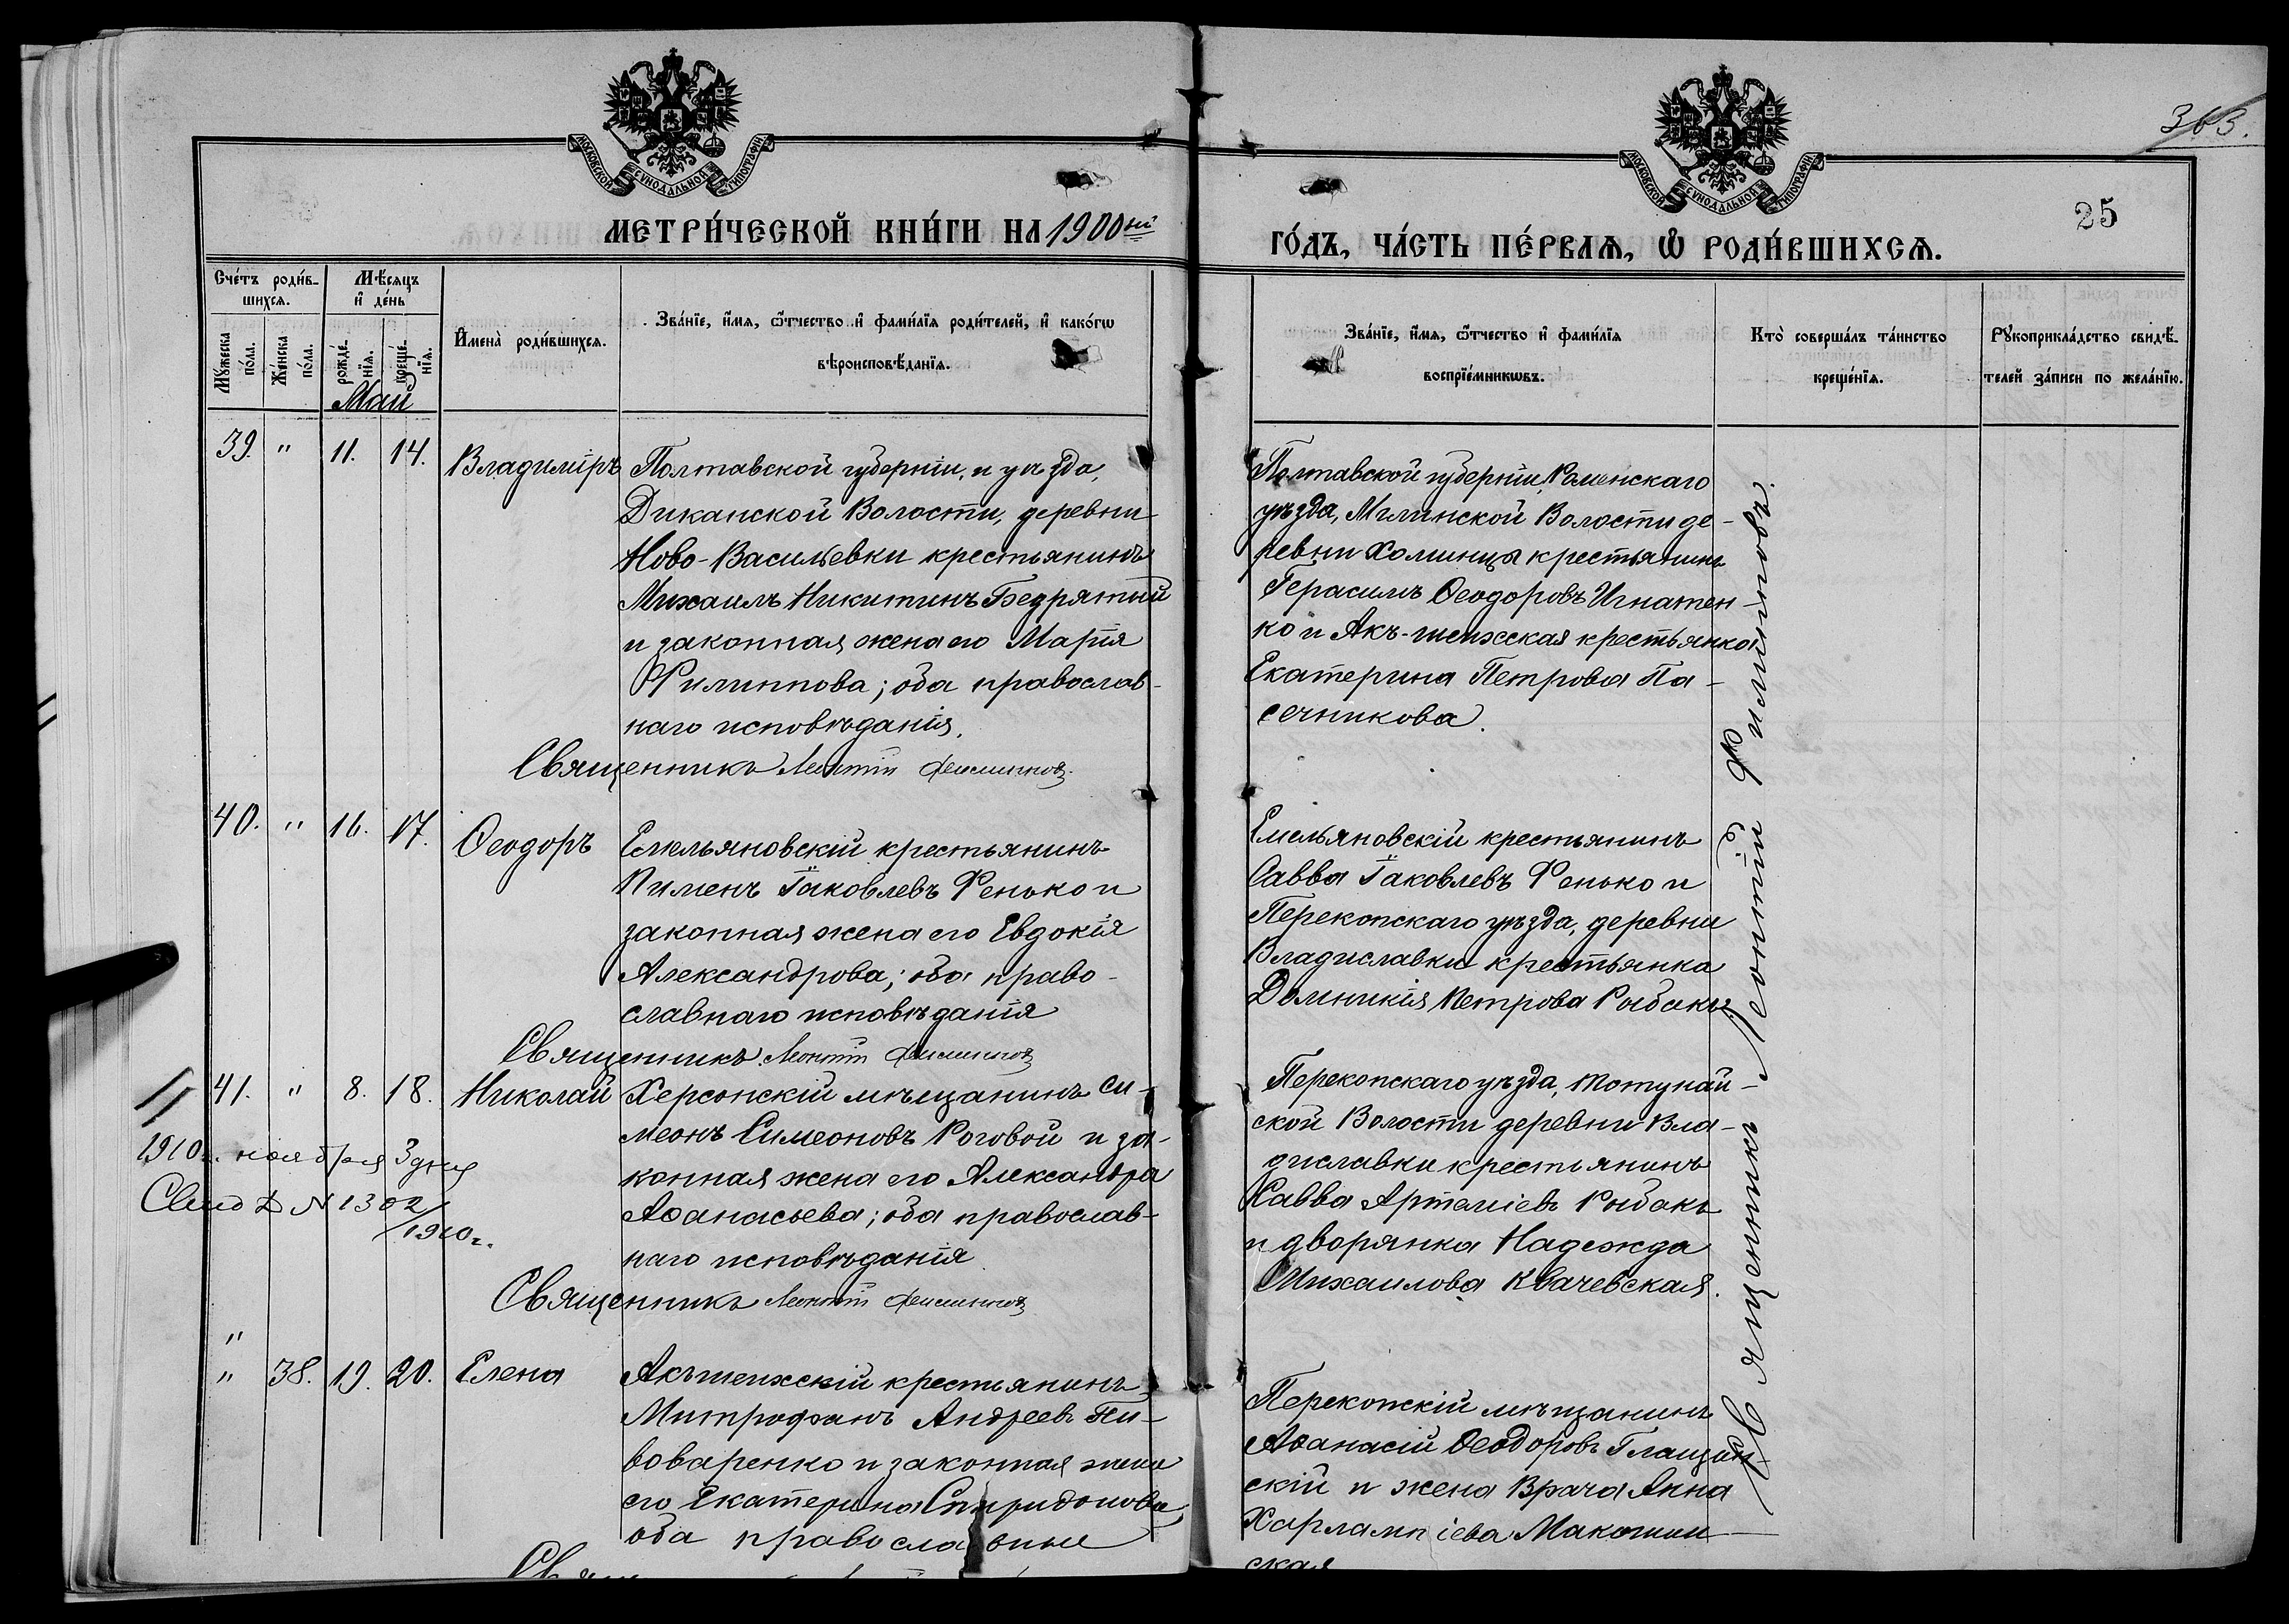 363.
25
МОСКОВСКОЙ СѴНОДАЛЬНОЙ ТИПОГРАФІИ
МОСКОВСКОЙ СѴНОДАЛЬНОЙ ТИПОГРАФІИ
МЕТРИ́ЧЕСКОЙ КНИ́ГИ НА 1900ый
ГО́ДЪ, ЧА́СТЬ ПЕ́РВАѦ, Ѡ РОДИ́ВШИХСѦ.
Сче́тъ роди́в-
шихсѧ.
Мѣ́сѧцъ
и де́нь
Мꙋ́жеска
по́ла.
Же́нска
по́ла.
рожде́-
нїѧ.
креще́-
нїѧ.
Имена̀ роди́вшихсѧ.
Зва́нїе, и́мѧ, ѻ́тчество и фами́лїѧ роди́телей, и како́гѡ
вѣроисповѣ́данїѧ.
Зва́нїе, и́мѧ, ѻ́тчество и фами́лїѧ
воспрїе́мникѡвъ.
Кто̀ соверша́лъ та́инство
креще́нїѧ.
Рꙋкоприкла́дство свидѣ́-
телей за́писи по жела́нїю.
Май
39. " 11. 14. Владиміръ Полтавской губерніи, и уѣзда,
Диканской Волости, деревни
Ново-Васильевки крестьянинъ
Михаилъ Никитинъ Безрятный
и законная жена его Марія
Филиппова; оба православ-
наго исповѣданія.
Священникъ Леонтій Филипповъ
Полтавской губерніи, Роменскаго
уѣзда, Милинской Волости де-
ревни Хоминцы крестьянинъ
Герасимъ Ѳеодоровъ Игнатен-
ко и Акъ-шеихская крестьянка
Екатерина Петрова Па-
сечникова.
40. " 16. 17. Ѳеодоръ Емельяновскій крестьянинъ
Пименъ Іаковлевъ Фенько и
законная жена его Евдокія
Александрова; оба право-
славнаго исповѣданія
Священникъ Леонтій Филипповъ
Емельяновскій крестьянинъ
Савва Іаковлевъ Фенько и
Перекопскаго уѣзда, деревни
Владиславки крестьянка
Домникія Петрова Рыбакъ.
41. " 8. 18. Николай Херсонскій мѣщанинъ Си-
меонъ Симеоновъ Роговой и за-
конная жена его Александра
Аѳанасьева; оба православ-
наго исповѣданія
Священникъ Леонтій Филипповъ
1910г. ноября 3 дня
Свид № 1302
/1910г.
Перекопскаго уѣзда, Мотунай-
ской Волости деревни Вла-
диславки крестьянинъ
Савва Артеміевъ Рыбакъ
и дворянка Надежда
Михаилова Квачевская.
"
" 38. 19. 20. Елена Акъшеихскій крестьянинъ
Митрофанъ Андреевъ Пи-
воваренко и законная жена
его Екатерина Спиридонова
оба православные
Перекопскій мѣщанинъ
Аѳанасій Ѳеодоровъ Глащин-
скій и жена Врача Анна
Харлампіева Макошин-
ская
Священникъ Леонтій Филипповъ.